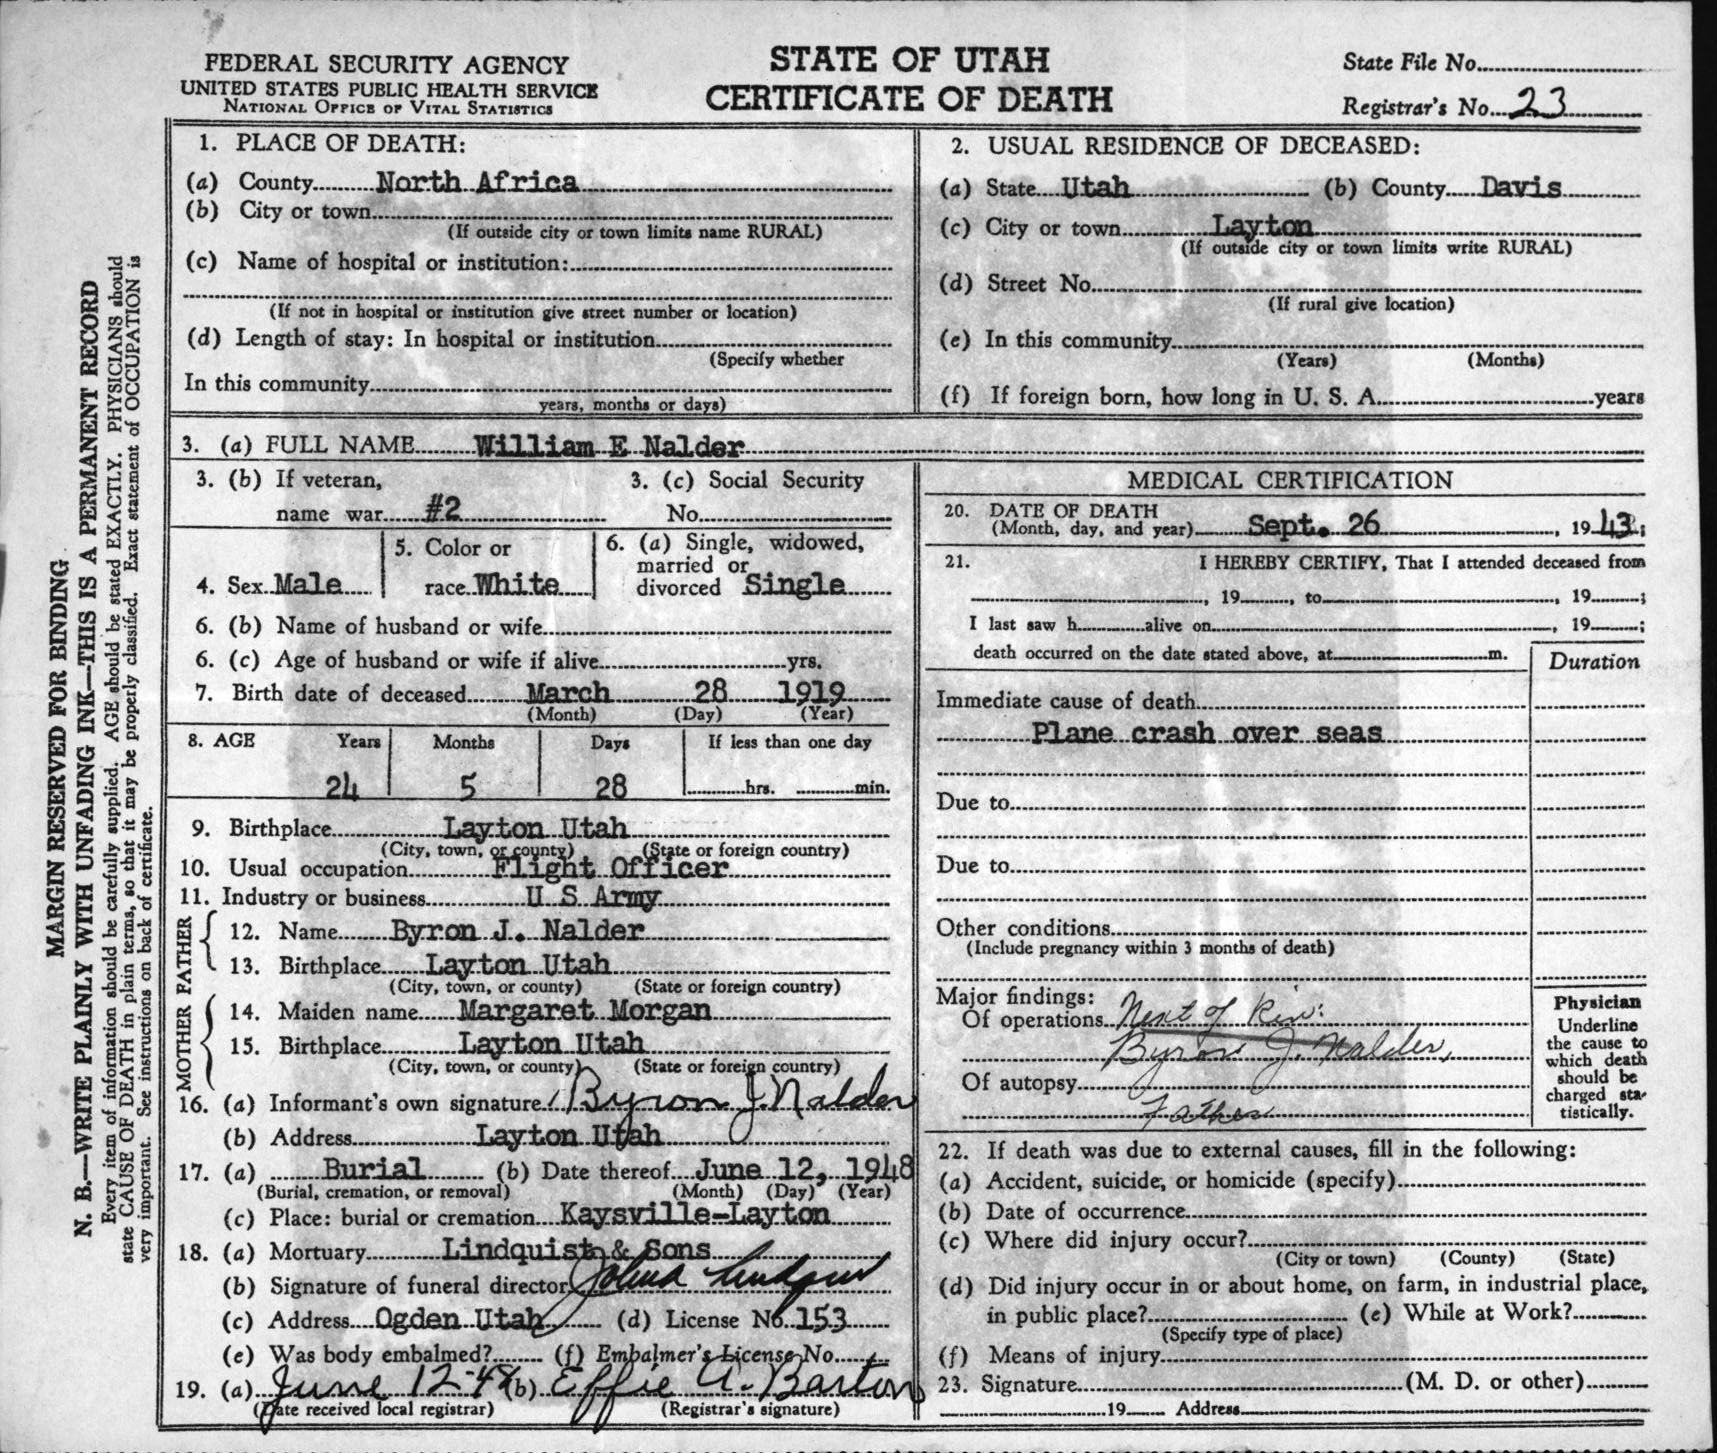 FEDERAL SECURITY AGENCY
UNITED STATES PUBLIC HEALTH SERVICE
NATIONAL OFFICE OF VITAL STATISTICS
STATE OF UTAH
CERTIFICATE OF DEATH
State File No.
Registrar's No. 23
MARGIN RESERVED FOR BINDING
N. B.—WRITE PLAINLY WITH UNFADING INK—THIS IS A PERMANENT RECORD
Every item of information should be carefully supplied. AGE should be stated EXACTLY. PHYSICIANS should
state CAUSE OF DEATH in plain terms, so that it may be properly classified. Exact statement of OCCUPATION is
very important. See instructions on back of certificate.
1. PLACE OF DEATH:
(a) County North Africa
(b) City or town
(If outside city or town limits name RURAL)
(c) Name of hospital or institution:
(If not in hospital or institution give street number or location)
(d) Length of stay: In hospital or institution
(Specify whether
In this community
years, months or days)
2. USUAL RESIDENCE OF DECEASED:
(a) State Utah (b) County Davis
(c) City or town Layton
(If outside city or town limits write RURAL)
(d) Street No.
(If rural give location)
(e) In this community
(Years) (Months)
(f) If foreign born, how long in U. S. A. years
3. (a) FULL NAME William E Nalder
3. (b) If veteran, 3. (c) Social Security
name war #2 No.
4. Sex Male
5. Color or
race White
6. (a) Single, widowed,
married or
divorced Single
6. (b) Name of husband or wife
6. (c) Age of husband or wife if alive yrs.
7. Birth date of deceased March 28 1919
(Month) (Day) (Year)
8. AGE Years Months Days If less than one day
24 5 28 hrs. min.
9. Birthplace Layton Utah
(City, town, or county) (State or foreign country)
10. Usual occupation Flight Officer
11. Industry or business U S Army
FATHER
12. Name Byron J. Nalder
13. Birthplace Layton Utah
(City, town, or county) (State or foreign country)
MOTHER
14. Maiden name Margaret Morgan
15. Birthplace Layton Utah
(City, town, or county) (State or foreign country)
16. (a) Informant's own signature Byron J. Nalder
(b) Address Layton Utah
17. (a) Burial (b) Date thereof June 12, 1948
(Burial, cremation, or removal) (Month) (Day) (Year)
(c) Place: burial or cremation Kaysville-Layton
18. (a) Mortuary Lindquist & Sons
(b) Signature of funeral director
(c) Address Ogden Utah (d) License No. 153
(e) Was body embalmed? (f) Embalmer's License No.
19. (a) June 12-48 (b) Effie A. Barton
(Date received local registrar) (Registrar's signature)
MEDICAL CERTIFICATION
20. DATE OF DEATH
(Month, day, and year) Sept. 26, 1943;
21. I HEREBY CERTIFY, That I attended deceased from
, 19 , to , 19 ;
I last saw h alive on , 19 ;
death occurred on the date stated above, at m.
Duration
Immediate cause of death
Plane crash over seas
Due to
Due to
Other conditions
(Include pregnancy within 3 months of death)
Major findings:
Of operations Next of Kin:
Byron J. Nalder,
Of autopsy
Father
Physician
Underline
the cause to
which death
should be
charged sta-
tistically.
22. If death was due to external causes, fill in the following:
(a) Accident, suicide, or homicide (specify)
(b) Date of occurrence
(c) Where did injury occur?
(City or town) (County) (State)
(d) Did injury occur in or about home, on farm, in industrial place,
in public place? (e) While at Work?
(Specify type of place)
(f) Means of injury
23. Signature (M. D. or other)
19 Address